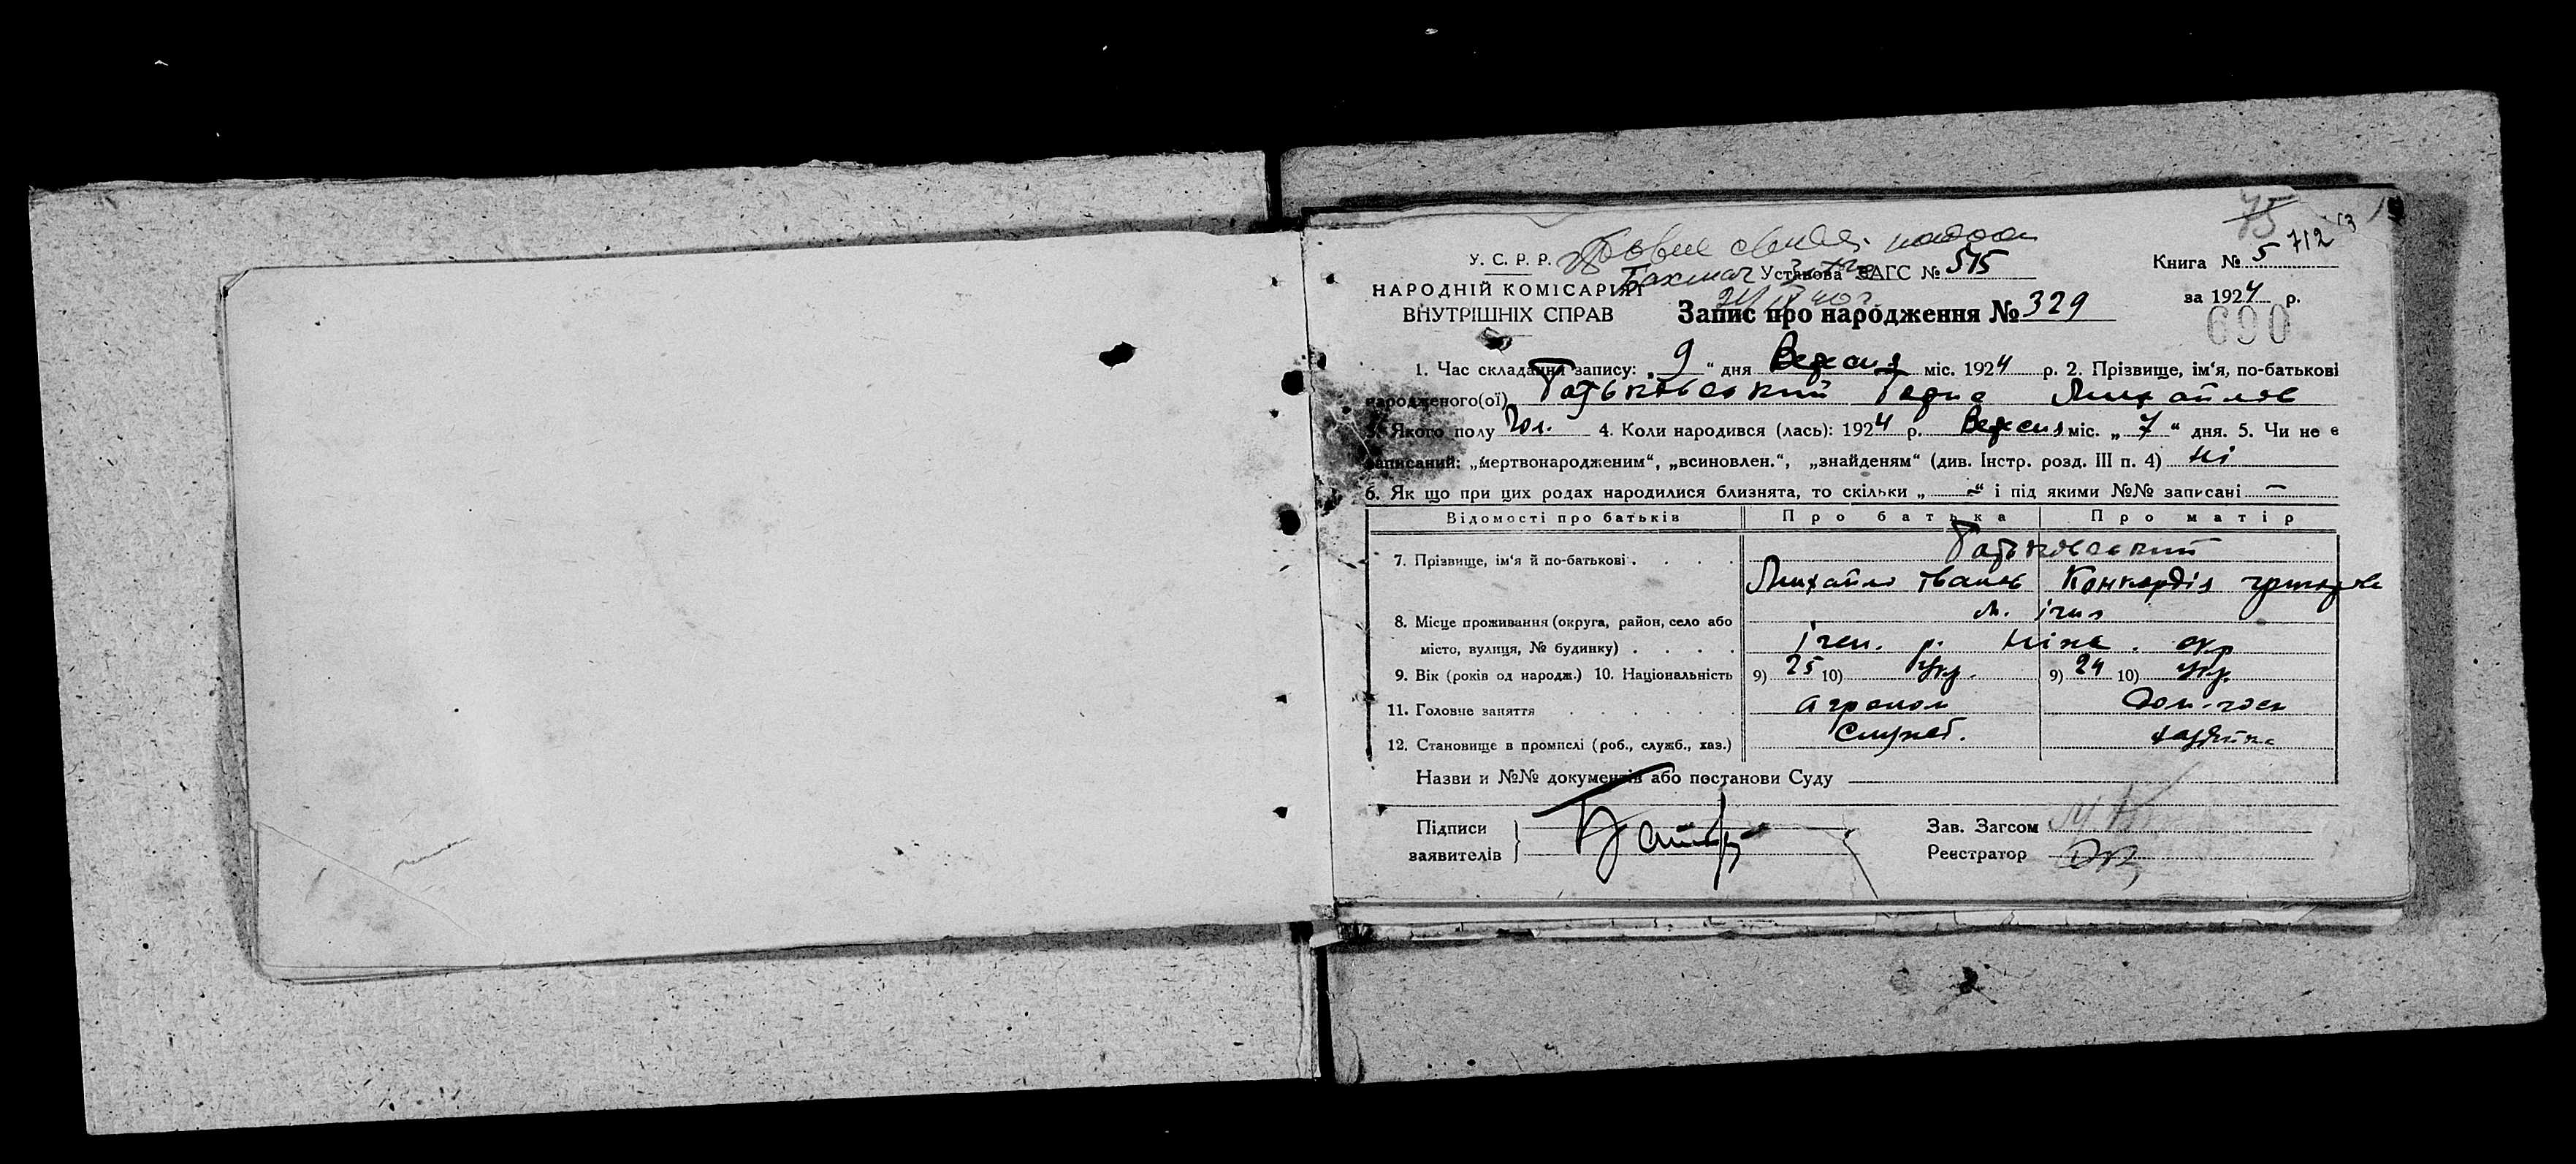 75 712
У. С. Р. Р.
Установа ЗАГС № 515
Книга № 5
НАРОДНІЙ КОМІСАРІЯТ
ВНУТРІШНІХ СПРАВ
за 1924 р.
Запис про народження № 329
690
1. Час складання запису: „ 9 “ дня Вересня міс. 1924 р. 2. Прізвище, ім'я, по-батькові
народженого(ої) Михайлов
3. Якого полу Чол. 4. Коли народився (лась): 1924 р. Вересня міс. „ 7 “ дня. 5. Чи не є
записаний: „мертвонародженим“, „всиновлен.“, „знайденям“ (див. Інстр. розд. III п. 4) Ні
6. Як що при цих родах народилися близнята, то скільки „ — “ і під якими №№ записані —
Відомості про батьків Про батька Про матір
7. Прізвище, ім'я й по-батькові
Михайло Іванов Конкордія
8. Місце проживання (округа, район, село або м. Ічня
місто, вулиця, № будинку) Ічен. р. Ніж. окр
9. Вік (років од народж.) 10. Національність 9) 25 10) Укр. 9) 24 10) Укр.
11. Головне заняття агроном
12. Становище в промислі (роб., служб., хаз.) Службов.
Назви и №№ документів або постанови Суду
Підписи
заявителів
Зав. Загсом
Реєстратор